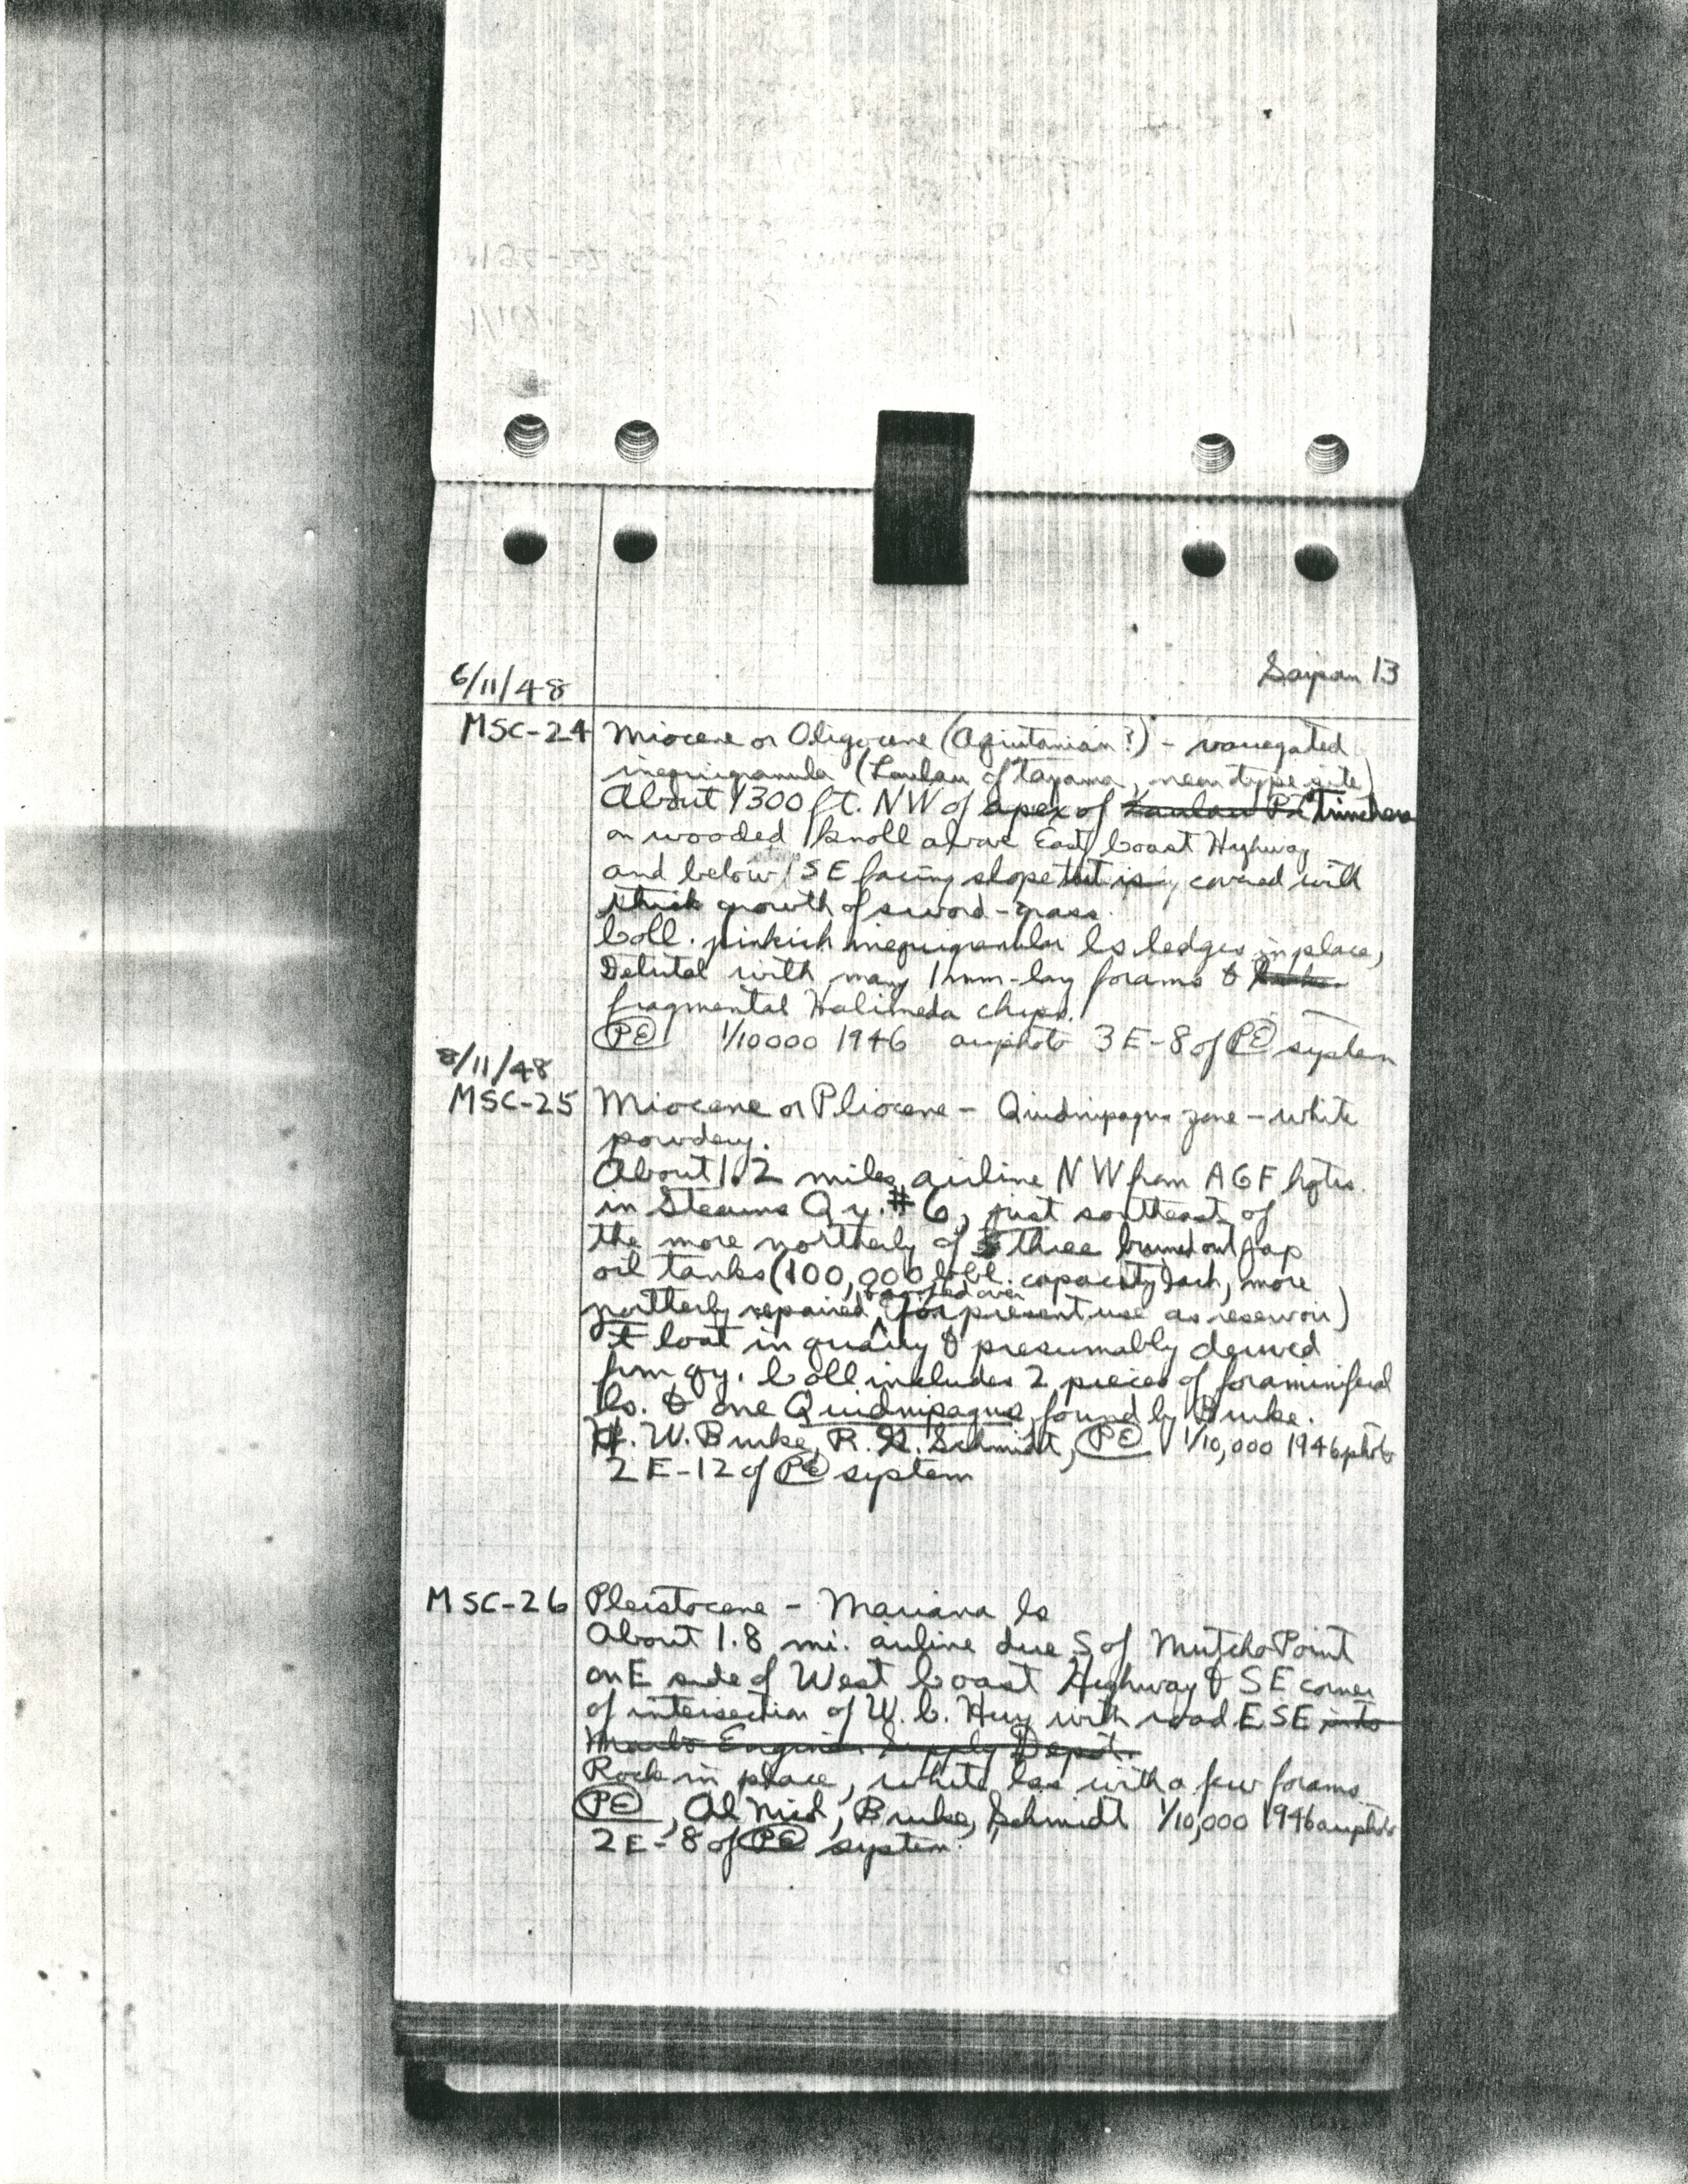 Saipan 13
6/11/48
MSC-24 Miocene or Oligocene (Aquitanian?) - variegated
inequigranular (Laulau of Tayama, near type site)
About 1300 ft. NW of apex of Laulau Pt
on wooded knoll above East Coast Highway
and below SE facing slope that is covered with
thick growth of sword-grass.
Coll. pinkish inequigranular ls ledges in place,
Detrital with many 1mm-long forams &
fragmental Halimeda chips.
PE 1/10000 1946 airphoto 3E-8 of PE system
8/11/48
MSC-25 Miocene or Pliocene - Quidnipagus zone - white
powdery.
About 1.2 miles airline NW from AGF hqtrs.
in Stearns Qy. #6, just southeast of
the more northerly of three burned out Jap
oil tanks (100,000 bbl. capacity each, more
northerly repaired & roofed over for present use as reservoir)
It loat in quarry & presumably derived
from qy. Coll includes 2 pieces of foraminiferal
ls. & one Quidnipagus, found by Burke.
H. W. Burke, R. G. Schmidt, PE 1/10,000 1946 photo
2E-12 of PE system
MSC-26 Pleistocene - Mariana ls
About 1.8 mi. airline due S of Mutcho Point
on E side of West Coast Highway & SE corner
of intersection of W. C. Hwy with road ESE into
Marbo Engineer Supply Depot.
Rock in place, white ls with a few forams
PE, Burke, Schmidt 1/10,000 1946 airphoto
2E-8 of PE system.